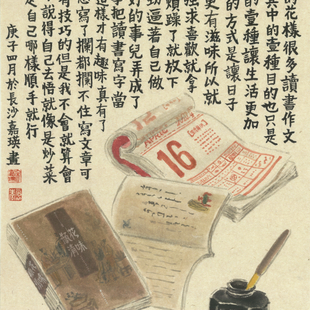 的花樣很多讀書作文
其中的壹種目的也只是
的壹種讓生活更加
的方式是讓日子
更有滋味所以就
獨求喜歡就拿
煩躁了就放下
劲逼著自己做
好的事兒弄成了
事把讀書寫字當
這樣才有趣味真有了
想寫了攔都攔不住寫文章可
有技巧的但是我不會就算會
說得自己去悟就像是炒菜
是自己哪樣順手就行
庚子四月於長沙嘉瑛畫
APRIL
16